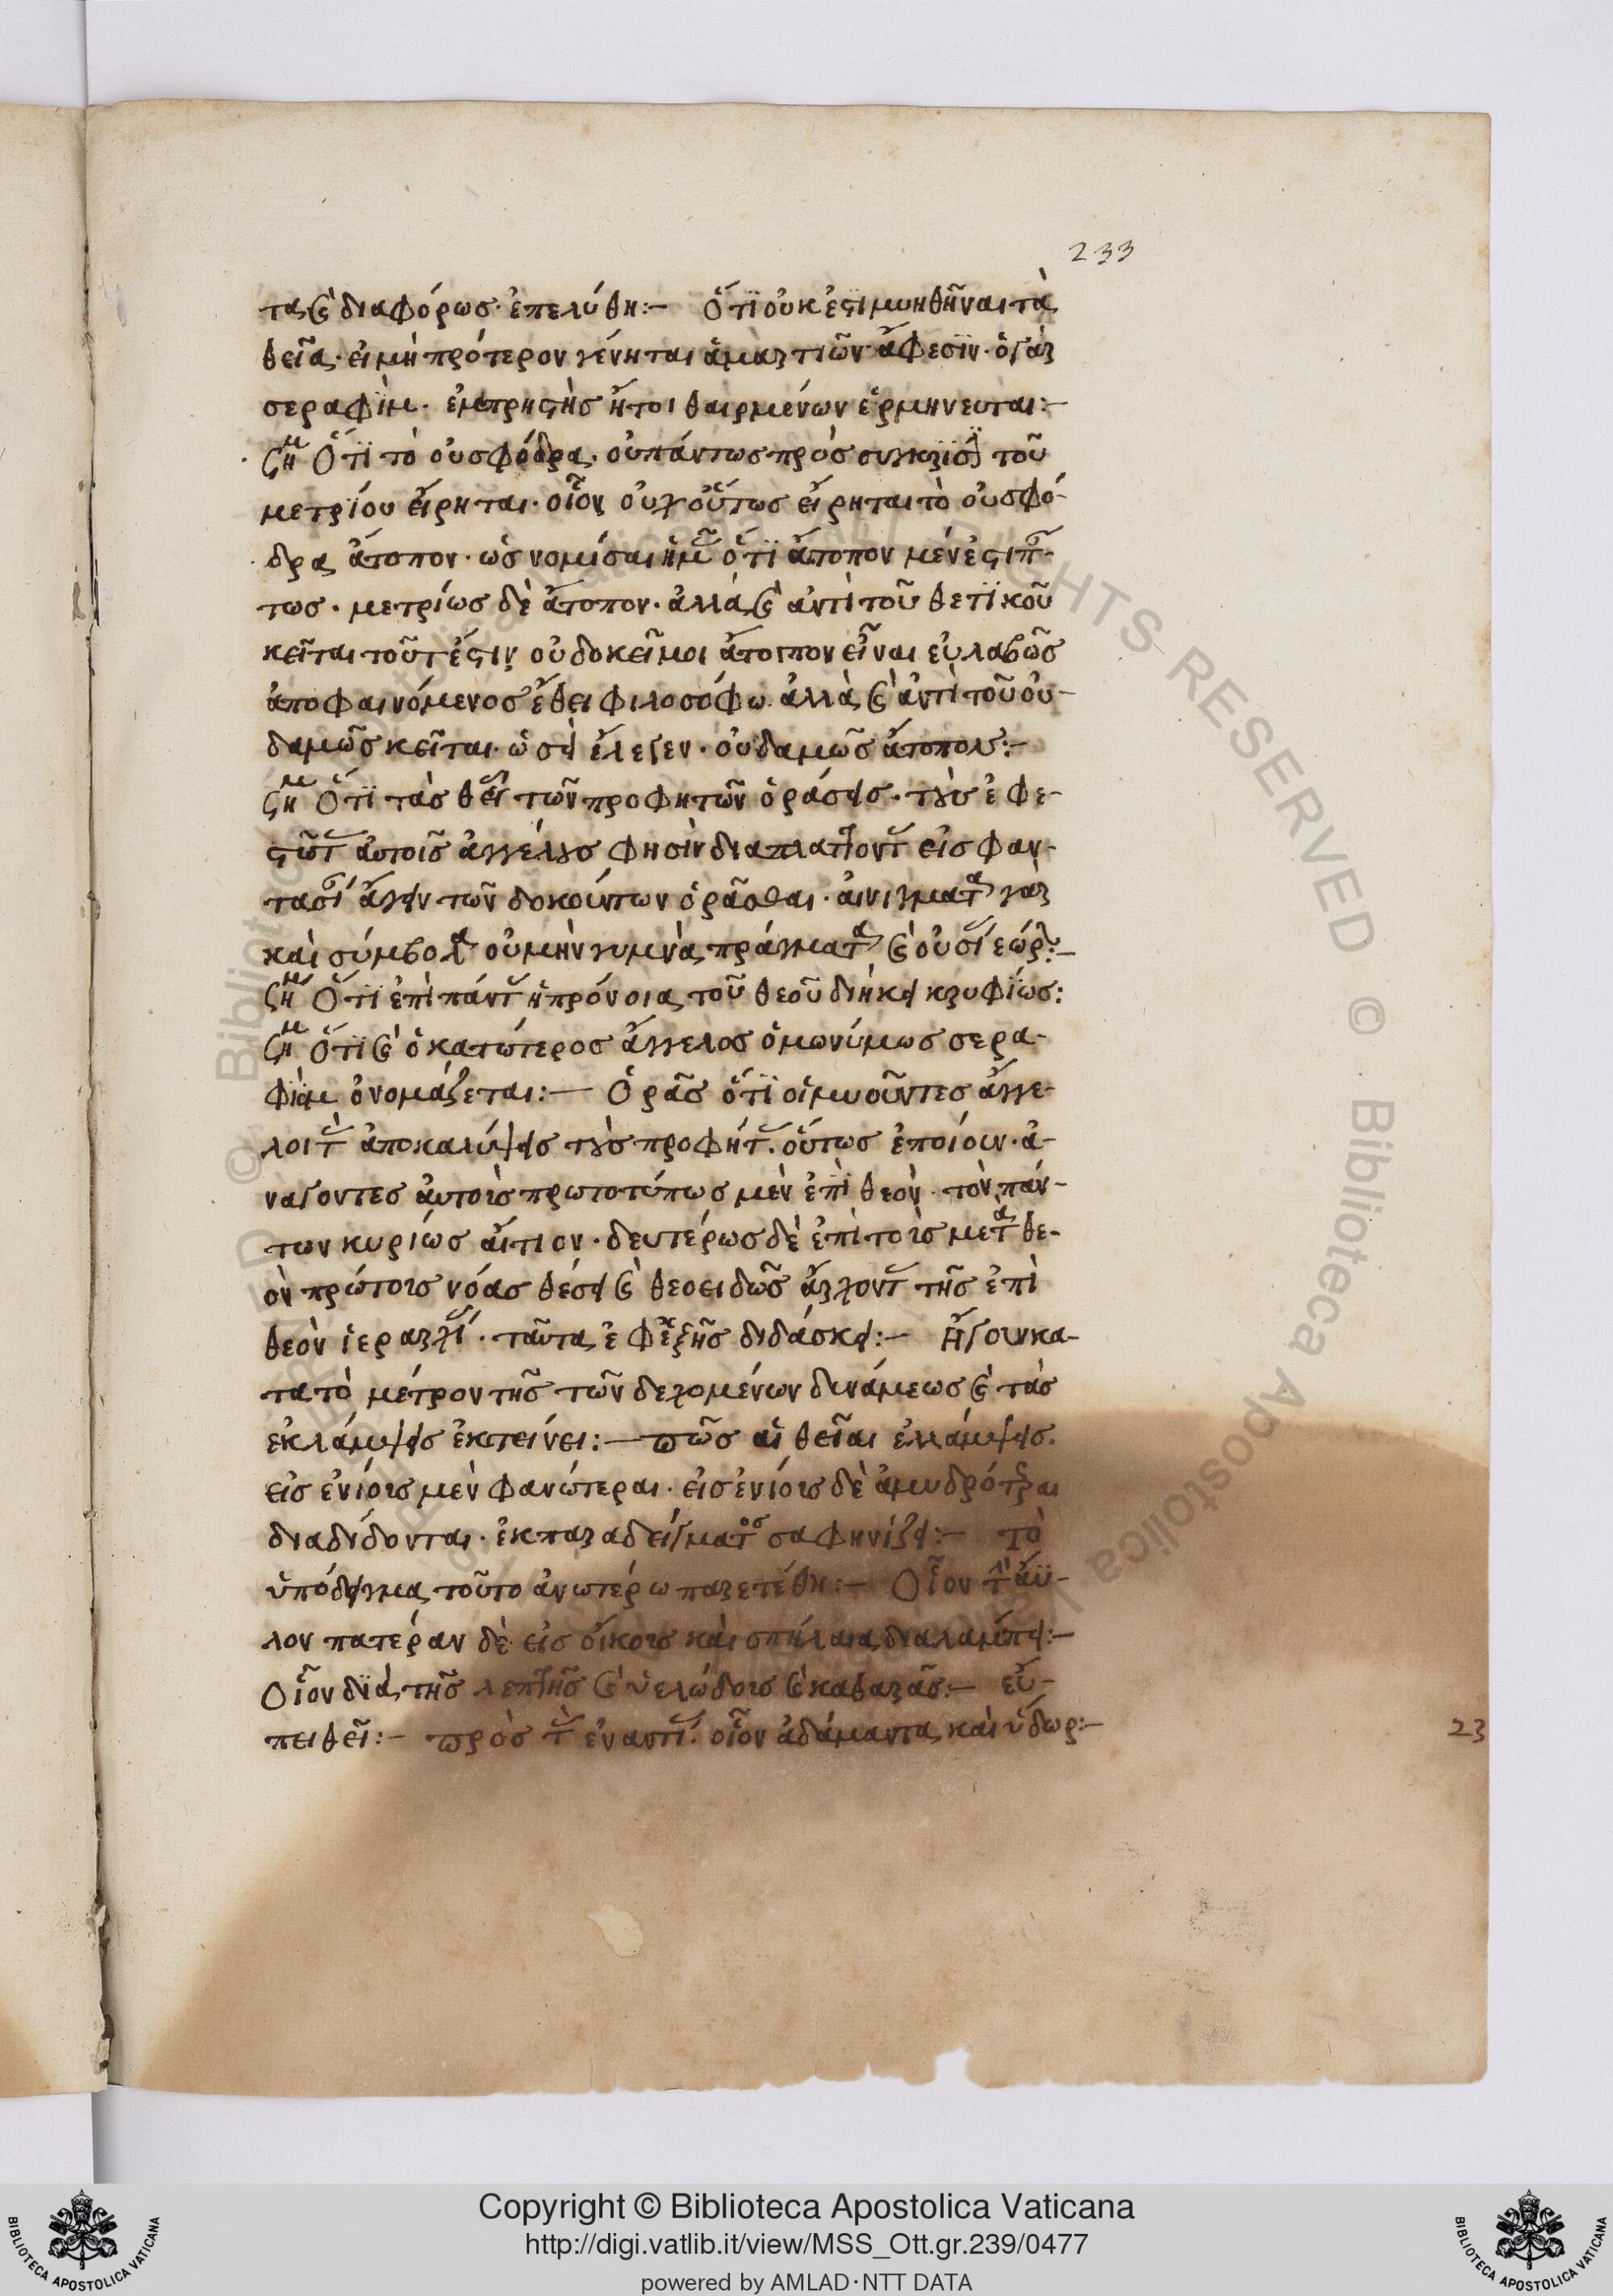 233
τα καὶ διαφόρως ἐπελύθη:— Ὅτι οὐκ ἔστι μυηθῆναι τὰ
θεῖα· εἰ μὴ πρότερον γένηται ἁμαρτιῶν ἄφεσιν· ὁ γὰρ
σεραφὶμ· ἐμπρηστὴς ἤτοι θαιρμένων ἑρμηνευται:—
Ση Ὅτι τὸ οὐ σφόδρα· οὐ πάντως πρὸς σύγκρισιν τοῦ
μετρίου εἴρηται· οἷον οὐχ οὕτως εἴρηται τὸ οὐ σφό-
δρα ἄτοπον· ὡς νομίσαι ἡμᾶς ὅτι ἄτοπον μέν ἐστι πάν-
τως· μετρίως δὲ ἄτοπον· ἀλλὰ καὶ ἀντὶ τοῦ θετικοῦ
κεῖται τοῦτ' ἔστιν οὐ δοκεῖ μοι ἄτοπον εἶναι εὐλαβῶς
ἀποφαινόμενος ἔθει φιλοσόφω· ἀλλὰ καὶ ἀντὶ τοῦ οὐ-
δαμῶς κεῖται· ὡσεὶ ἔλεγεν· οὐδαμῶς ἄτοπον:—
Ση Ὅτι τὰς θείας τῶν προφητῶν ὁράσεις· τοὺς ἐφε-
στῶτας αὐτοῖς ἀγγέλους φησὶν διαπλάττοντας εἰς φαν-
τασίαν ἄγειν τῶν δοκούντων ὁρᾶσθαι· αἰνίγματα γὰρ
καὶ σύμβολα οὐ μὴν γυμνὰ πράγματα καὶ οὐσίας ἑώρων:—
Ση Ὅτι ἐπὶ πάντας ἡ πρόνοια τοῦ θεοῦ διήκει κρυφίως:
Ση Ὅτι καὶ ὁ κατώτερος ἄγγελος ὁμωνύμως σερα-
φὶμ ὀνομάζεται:— Ὁρᾶς ὅτι οἱ μυοῦντες ἄγγε-
λοι τὰς ἀποκαλύψεις τοὺς προφήτας. οὕτως ἐποίουν· ἀ-
νάγοντες αὐτοὺς πρωτοτύπως μὲν ἐπὶ θεὸν· τὸν πάν-
των κυρίως αἴτιον· δευτέρως δὲ ἐπὶ τοὺς μετὰ θε-
ὸν πρώτους νόας θέσει καὶ θεοειδῶς ἄρχοντας τῆς ἐπὶ
θεὸν ἱεραρχίας· ταῦτα ἐφεξῆς διδάσκει:— Ἤγουν κα-
τὰ τὸ μέτρον τῆς τῶν δεχομένων δυνάμεως καὶ τὰς
ἐκλάμψεις ἐκτείνει:— πῶς αἱ θεῖαι ἐλλάμψεις.
εἰς ἐνίους μὲν φανώτεραι· εἰς ἐνίους δὲ ἀμυδρότεραι
διαδίδονται· ἐκ παραδείγματος σαφηνίζει:— τὸ
ὑπόδειγμα τοῦτο ἀνωτέρω παρετέθη:— Οἷον τὴν ἄϋ-
λον πατεράν δὲ εἰς οἴκους καὶ σπήλαια διαλάμπει:—
Οἷον διὰ τῆς λεπτῆς καὶ ὑελώδους καὶ καθαρᾶς:— εὐ-
πειθεῖ:— πρὸς τὰς ἐναντίας· οἷον ἀδάμαντα καὶ ὕδωρ:—
23
Copyright © Biblioteca Apostolica Vaticana
http://digi.vatlib.it/view/MSS_Ott.gr.239/0477
powered by AMLAD·NTT DATA